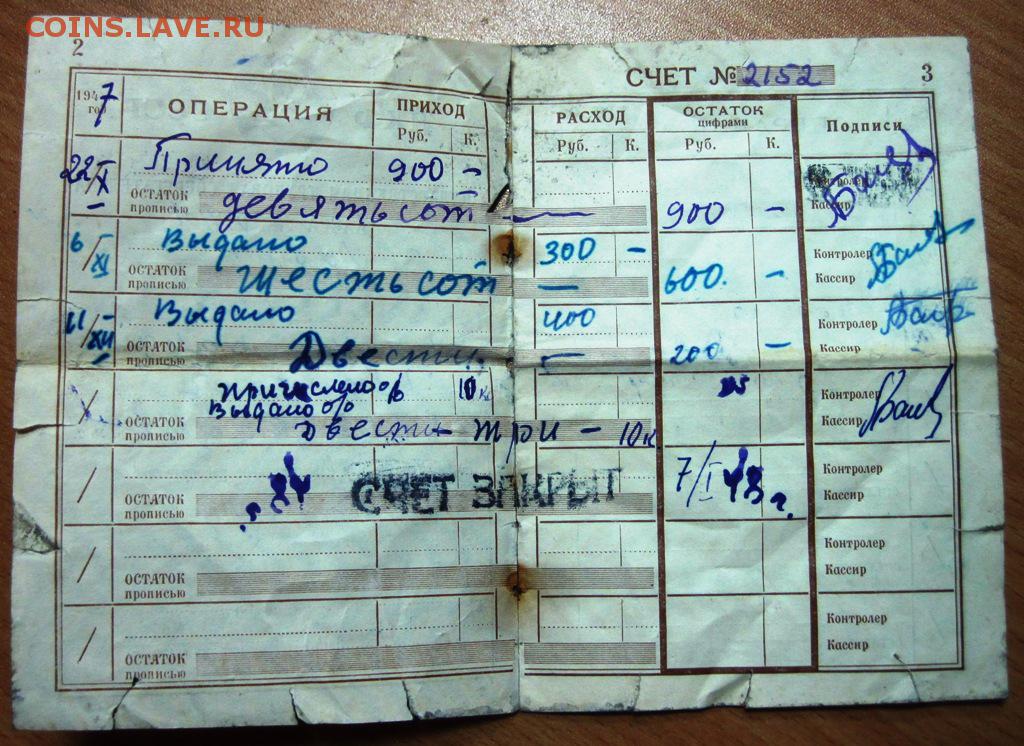 COINS.LAVE.RU
2
СЧЕТ № 2152 3
1947 год ОПЕРАЦИЯ ПРИХОД РАСХОД ОСТАТОК цифрами Подписи
Руб. К. Руб. К. Руб. К.
22/X Принято 900 –
ОСТАТОК прописью девятьсот — 900 – Контролер Кассир
6/XI Выдано 300 –
ОСТАТОК прописью Шестьсот — 600. – Контролер Кассир
11/XII Выдано 400
ОСТАТОК прописью Двести – 200 – Контролер Кассир
Причислено % 10 к
Выдано %
ОСТАТОК прописью Двести три – 10 к Контролер Кассир
СЧЕТ ЗАКРЫТ 7/I 48 г.
ОСТАТОК прописью Контролер Кассир
ОСТАТОК прописью Контролер Кассир
ОСТАТОК прописью Контролер Кассир